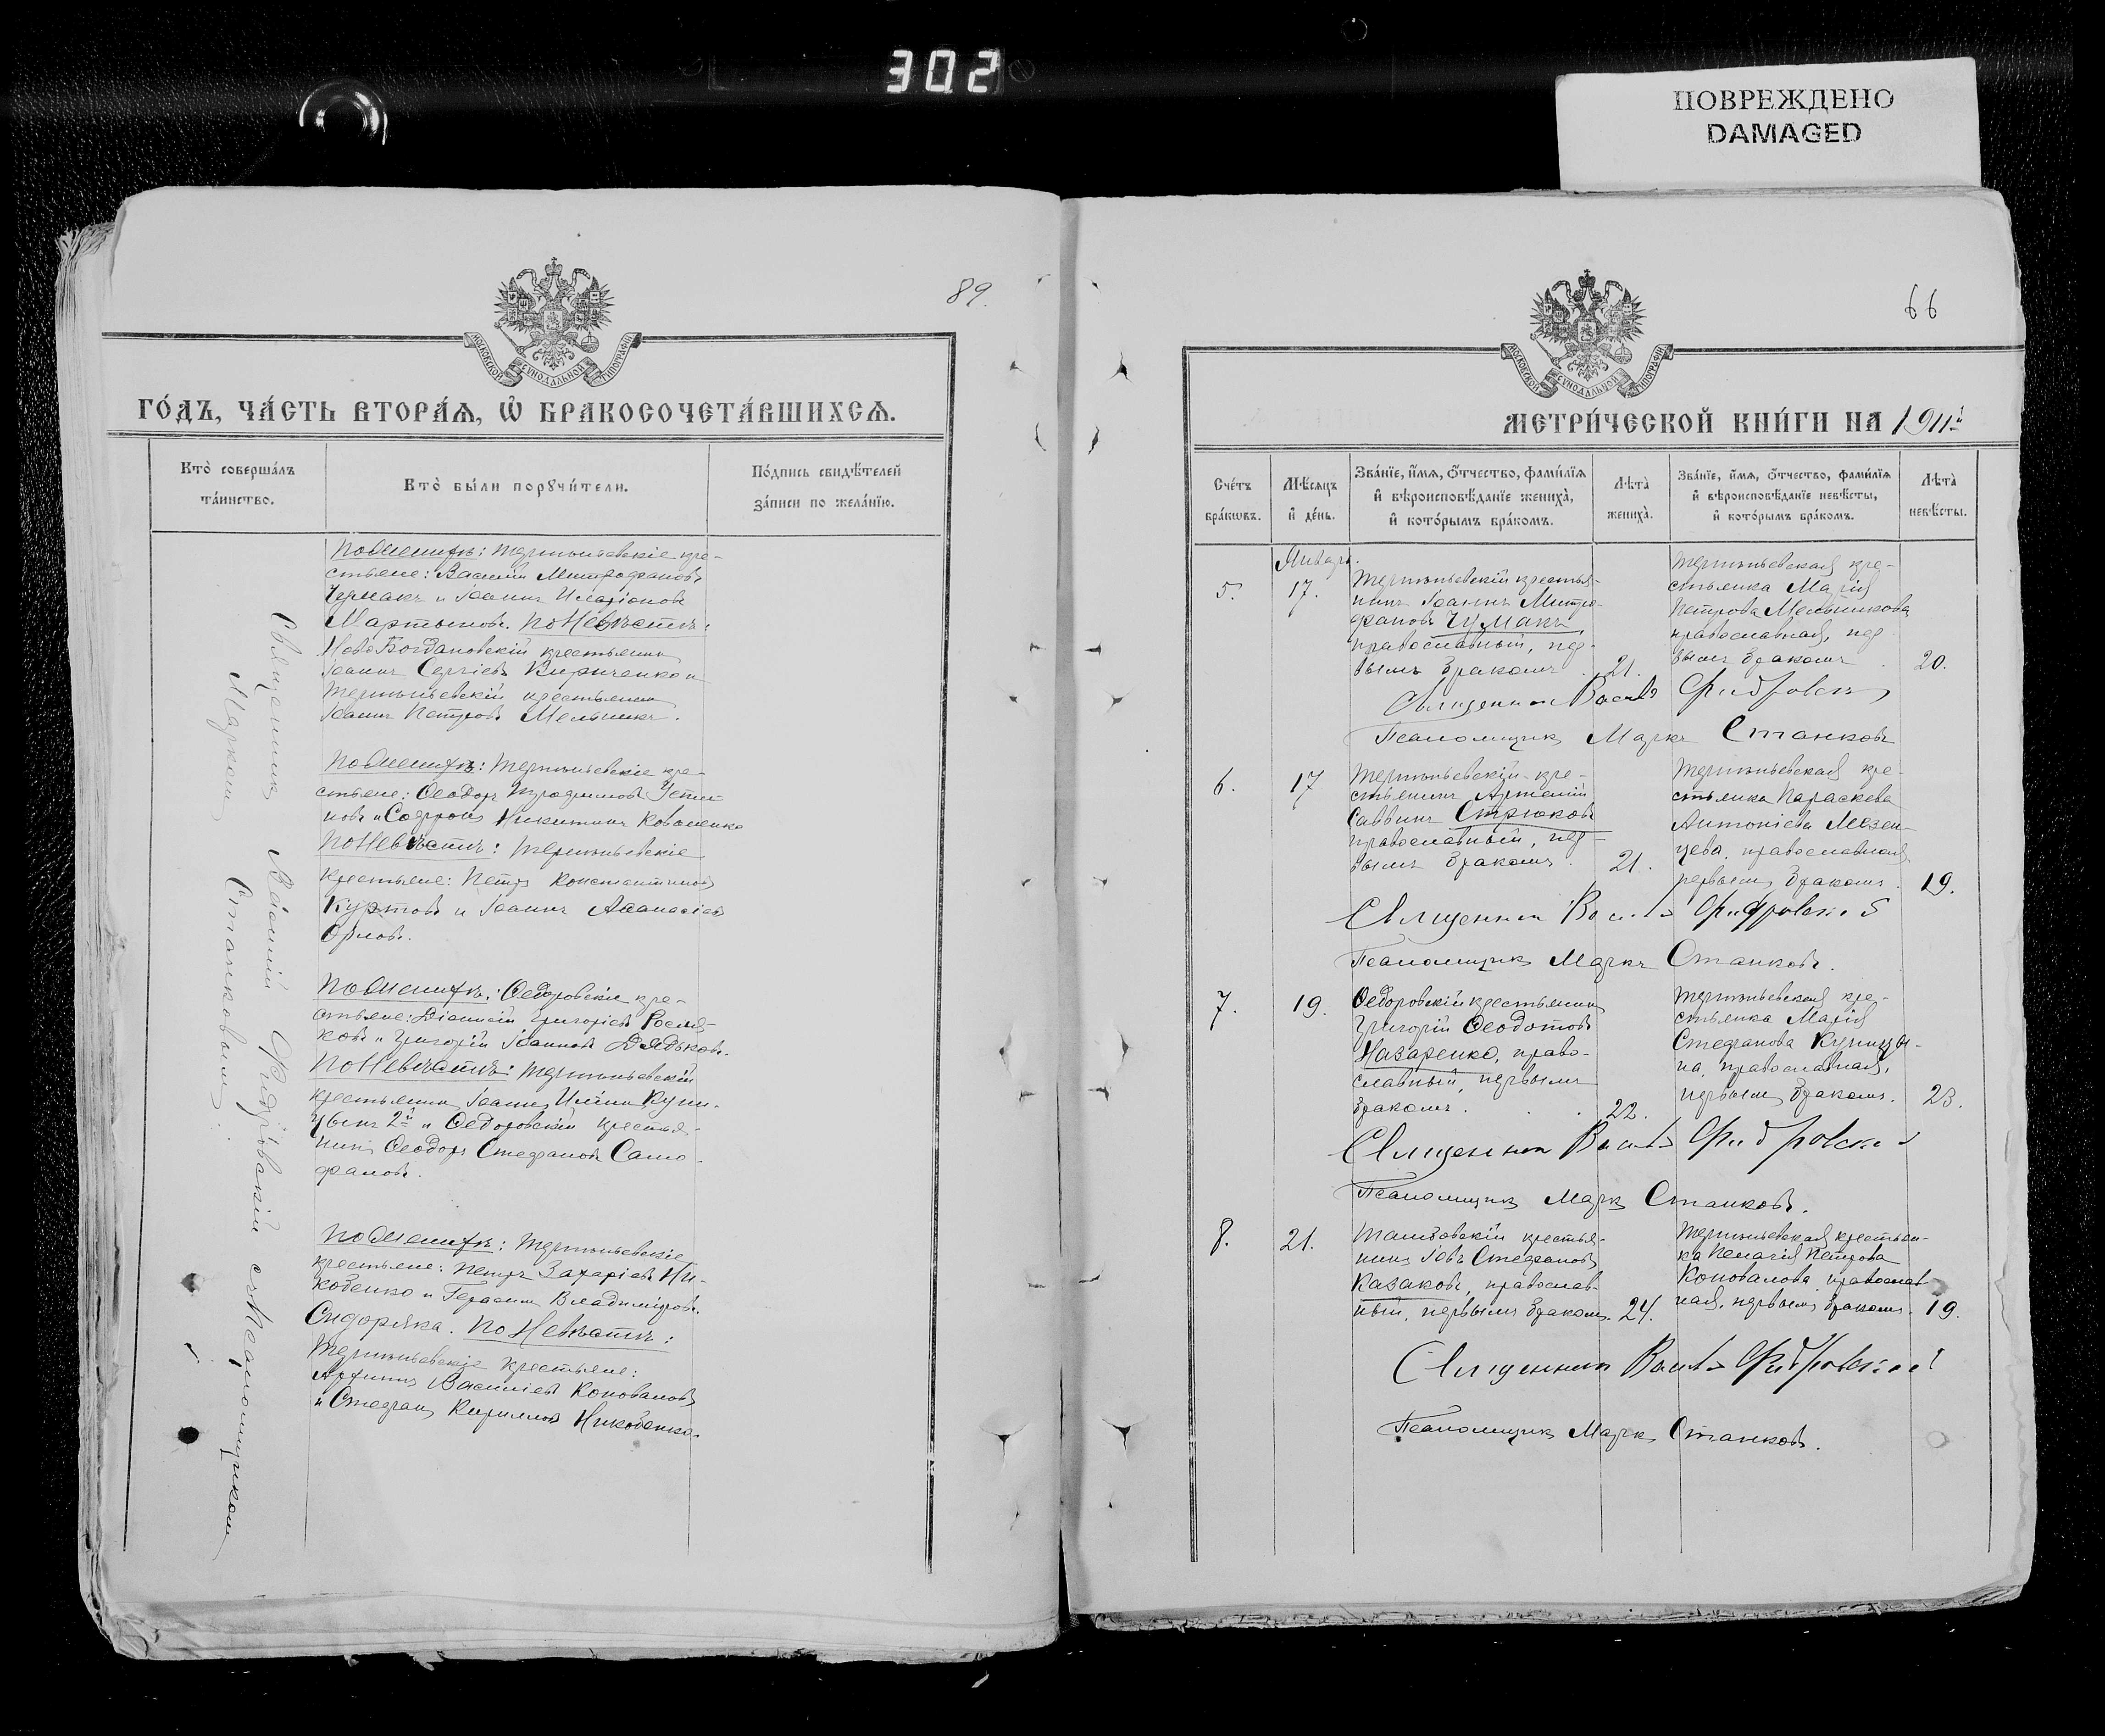 302
ПОВРЕЖДЕНО
DAMAGED
89.
МОСКОВСКОЙ СѴНОДАЛЬНОЙ ТИПОГРАФІИ
ГО́ДЪ, ЧА́СТЬ ВТОРА́Ѧ, Ѽ БРАКОСОЧЕТА́ВШИХСѦ.
Кто̀ соверша́лъ
та́инство.
Кто̀ бы́ли порꙋчи́тели.
По́дпись свидѣ́телей
за́писи по жела́нїю.
Священникъ Василій Фидровскій съ псаломщикомъ
Маркомъ Станковымъ.
По женихѣ: Терпѣньевскіе кре-
стьяне: Василій Митрофановъ
Чумакъ и Іоаннъ Иларіоновъ
Мартыновъ. По невѣстѣ:
Ново Богдановскій крестьянинъ
Іоаннъ Сергіевъ Кириченко и
Терпѣньевскій крестьянинъ
Іоаннъ Петровъ Мельникъ.
По женихѣ: Терпѣньевскіе кре-
стьяне: Ѳеодоръ Трофимовъ Усти-
новъ и Софроній Никитинъ Коваленко
По невѣстѣ: Терпѣньевскіе
крестьяне: Петръ Константиновъ
Куртовъ и Іоаннъ Аѳанасіевъ
Орловъ.
По женихѣ: Ѳедоровскіе кре-
стьяне: Діонисій Григоріевъ Росля-
ковъ и Григорій Іоанновъ Дядьковъ.
По невѣстѣ: Терпѣньевскій
крестьянинъ Іоаннъ Ильинъ Купи-
цынъ 2й и Ѳедоровскій крестья-
нинъ Ѳеодоръ Стефановъ Само-
фаловъ.
По женихѣ: Терпѣньевскіе
крестьяне: Петръ Захаріевъ Ни-
кобенко и Герасимъ Владиміровъ
Сидоряка. По невѣстѣ:
Терпѣньевскіе крестьяне:
Василіевъ Коноваловъ
и Стефанъ Кирилловъ Никобенко.
66
МОСКОВСКОЙ СѴНОДАЛЬНОЙ ТИПОГРАФІИ
МЕТРИ́ЧЕСКОЙ КНИ́ГИ НА 1911й
Сче́тъ
бра́кѡвъ.
Мѣ́сяцъ
и҆ де́нь.
Зва́нїе, и҆́мя, ѻ҆́тчество, фами́лїя
и҆ вѣроисповѣ́данїе жениха̀,
и҆ кото́рымъ бра́комъ.
Лѣ́та̀
жениха̀.
Зва́нїе, и҆́мя, ѻ҆́тчество, фами́лїя
и҆ вѣроисповѣ́данїе невѣ́сты,
и҆ кото́рымъ бра́комъ.
Лѣ́та̀
невѣ́сты.
Январь.
5.
17.
Терпѣньевскій крестья-
нинъ Іоаннъ Митро-
фановъ Чумакъ
православный, пер-
вымъ бракомъ
21.
Терпѣньевская кре-
стьянка Марія
Петрова Мельникова
православная, пер-
вымъ бракомъ
20.
Священникъ Василій Фидровскій
Псаломщикъ Маркъ Станковъ
6.
17
Терпѣньевскій кре-
стьянинъ Артемій
Саввинъ Стрюковъ
православный, пер-
вымъ бракомъ.
21.
Терпѣньевская кре-
стьянка Параскева
Антоніева Мезен-
цева, православная,
первымъ бракомъ.
19.
Священникъ Василій Фидровскій
Псаломщикъ Маркъ Станковъ.
7.
19.
Ѳедоровскій крестьянинъ
Григорій Ѳеодотовъ
Назаренко, право-
славный, первымъ
бракомъ.
22.
Терпѣньевская кре-
стьянка Марія
Стефанова Купицы-
на, православная,
первымъ бракомъ.
23.
Священникъ Василій Фидровскій
Псаломщикъ Маркъ Станковъ.
8.
21.
Тамбовскій крестья-
нинъ Іовъ Стефановъ
Казаковъ, православ-
ный, первымъ бракомъ.
24.
Терпѣньевская крестьян-
ка Пелагія Петрова
Коновалова православ-
ная, первымъ бракомъ.
19.
Священникъ Василій Фидровскій
Псаломщикъ Маркъ Станковъ.